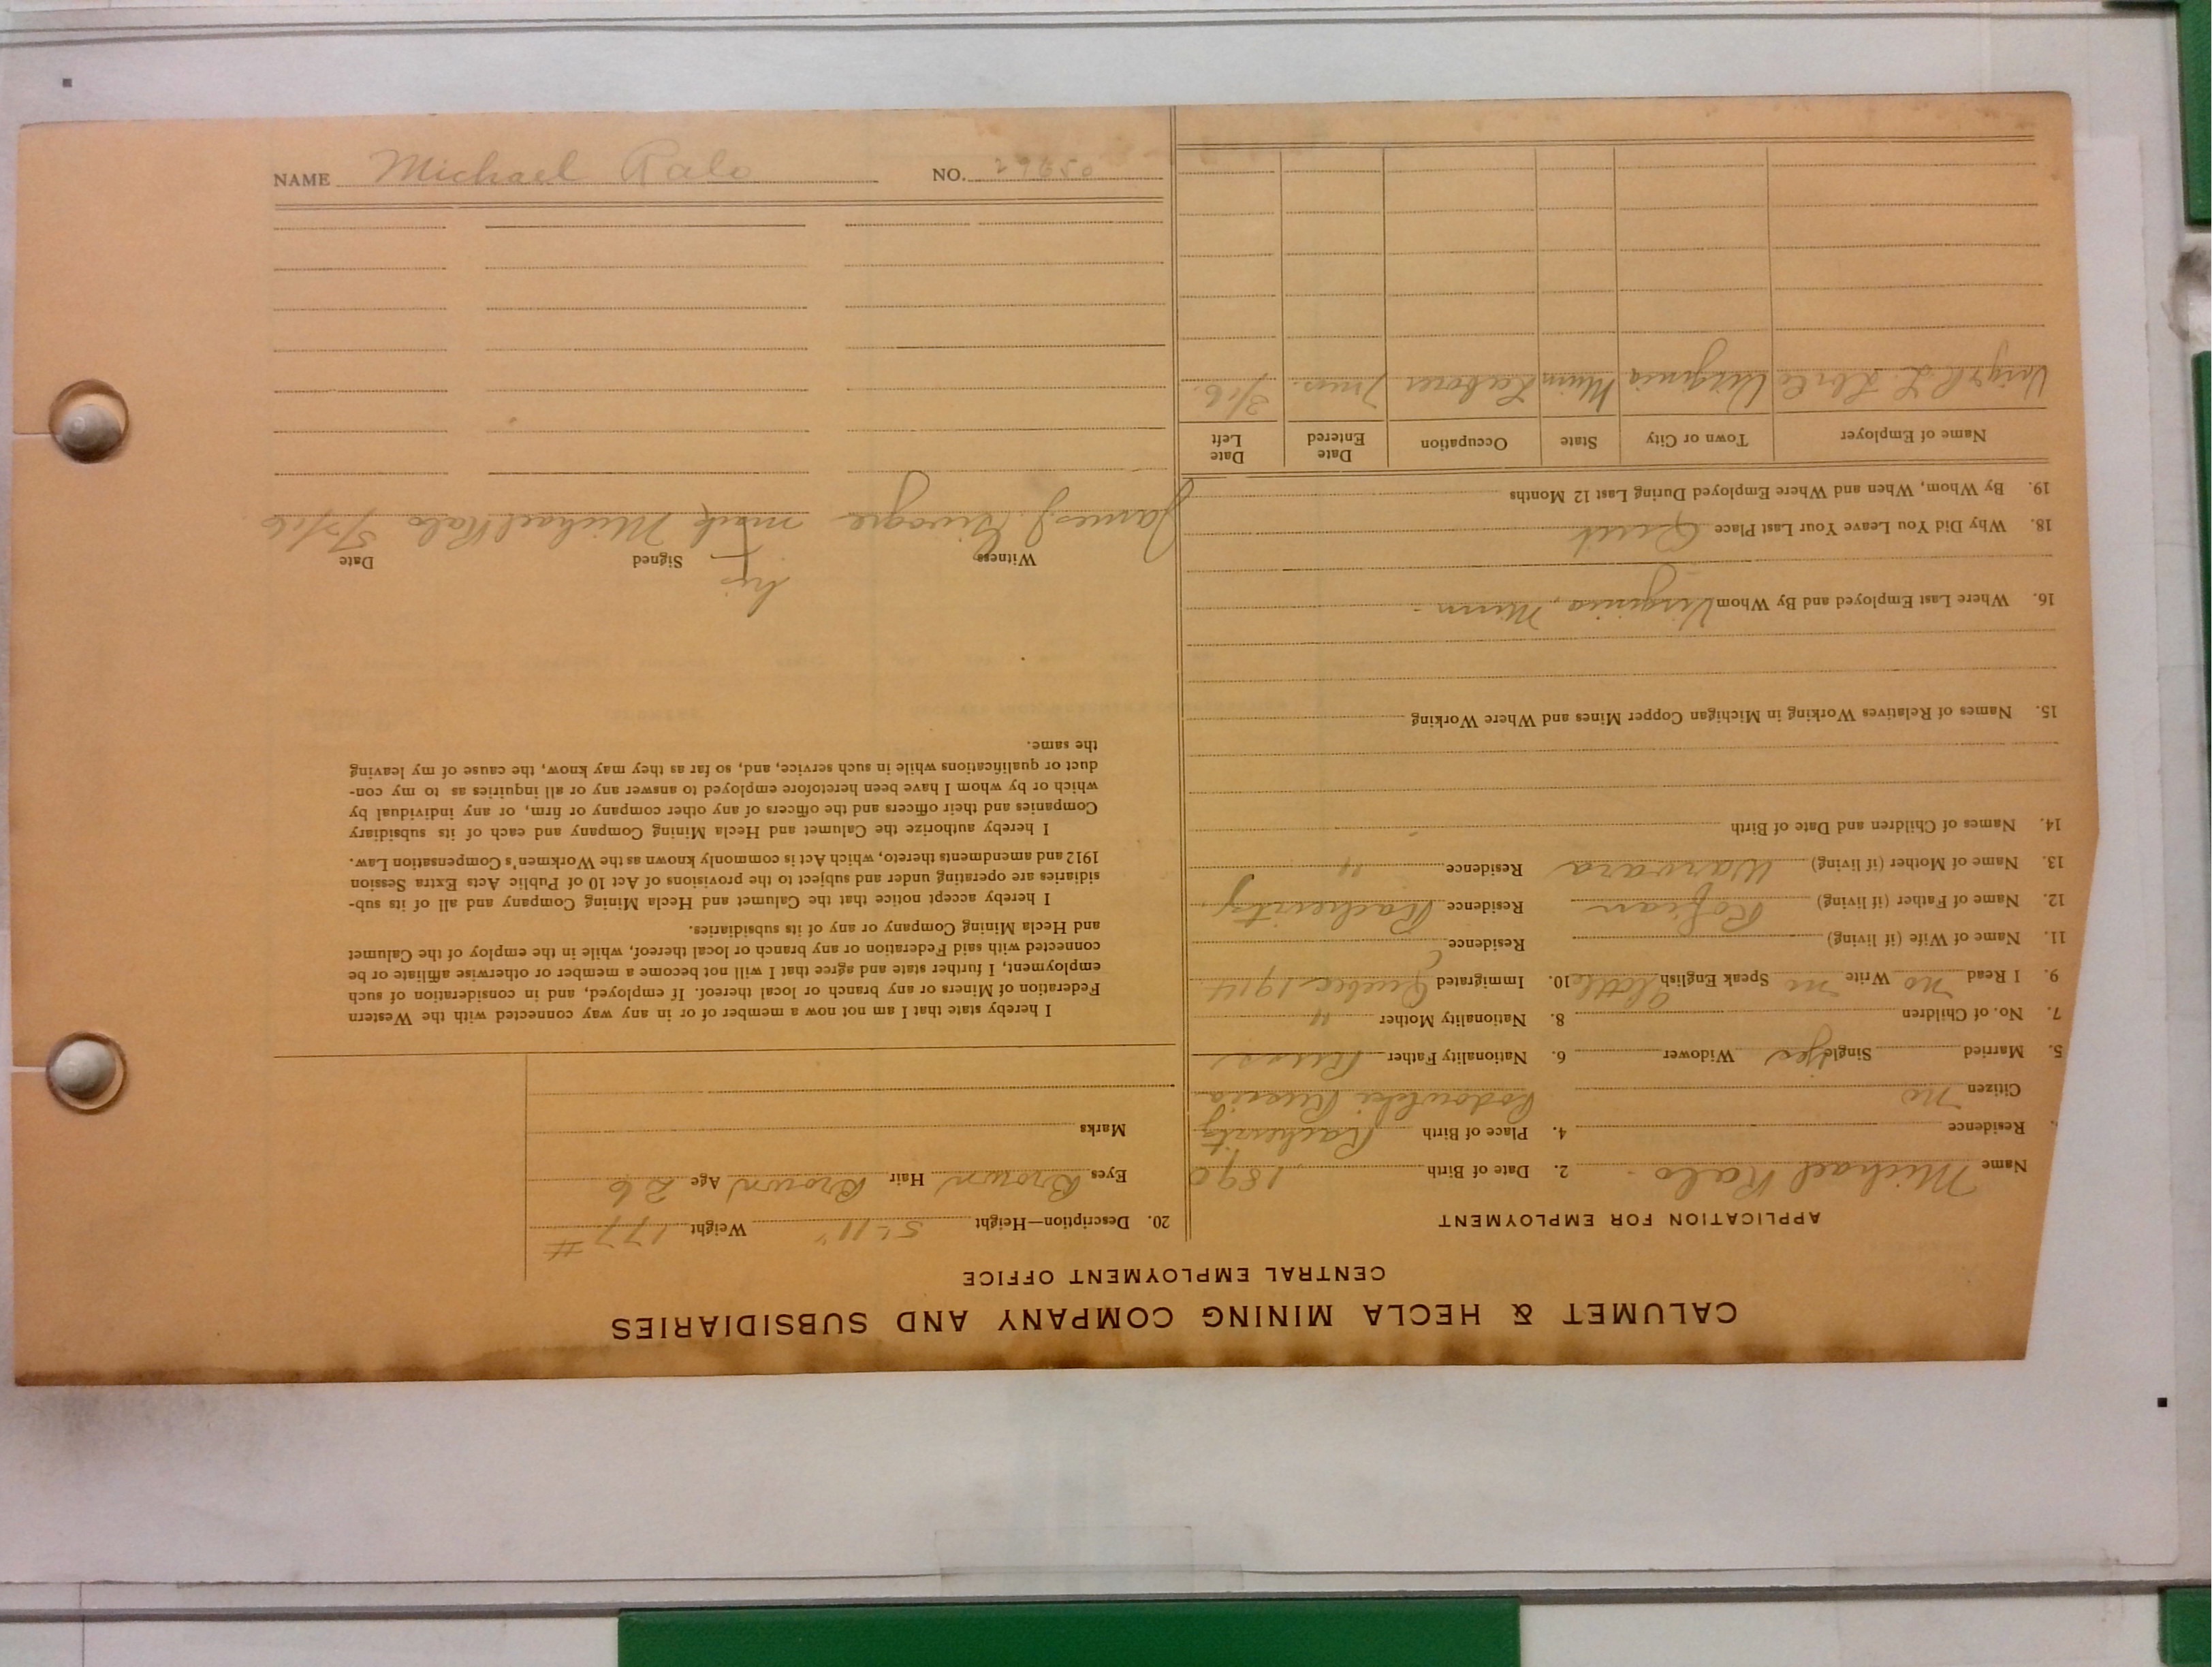 CALUMET & HECLA MINING COMPANY AND SUBSIDIARIES
CENTRAL EMPLOYMENT OFFICE
APPLICATION FOR EMPLOYMENT
Name Michael Ralo 2. Date of Birth 1890
Residence 4. Place of Birth
Citizen no Russia
5. Married Single yes Widower 6. Nationality Father Russ
7. No. of Children 8. Nationality Mother "
9. I Read no Write no Speak English little 10. Immigrated Quebec 1914
11. Name of Wife (if living) Residence
12. Name of Father (if living) Residence
13. Name of Mother (if living) Warvara Residence "
14. Names of Children and Date of Birth
15. Names of Relatives Working in Michigan Copper Mines and Where Working
16. Where Last Employed and By Whom Virginia, Minn.
18. Why Did You Leave Your Last Place Quit
19. By Whom, When and Where Employed During Last 12 Months
Name of Employer Town or City State Occupation Date Entered Date Left
Virginia Minn Laborer 3/16.
20. Description—Height 5'-11" Weight 177#
Eyes Brown Hair Brown Age 26
Marks
I hereby state that I am not now a member of or in any way connected with the Western
Federation of Miners or any branch or local thereof. If employed, and in consideration of such
employment, I further state and agree that I will not become a member or otherwise affiliate or be
connected with said Federation or any branch or local thereof, while in the employ of the Calumet
and Hecla Mining Company or any of its subsidiaries.
I hereby accept notice that the Calumet and Hecla Mining Company and all of its sub-
sidiaries are operating under and subject to the provisions of Act 10 of Public Acts Extra Session
1912 and amendments thereto, which Act is commonly known as the Workmen's Compensation Law.
I hereby authorize the Calumet and Hecla Mining Company and each of its subsidiary
Companies and their officers and the officers of any other company or firm, or any individual by
which or by whom I have been heretofore employed to answer any or all inquiries as to my con-
duct or qualifications while in such service, and, so far as they may know, the cause of my leaving
the same.
his
Witness Signed Date
James J. mark Michael Ralo
NAME Michael Ralo NO. 29650